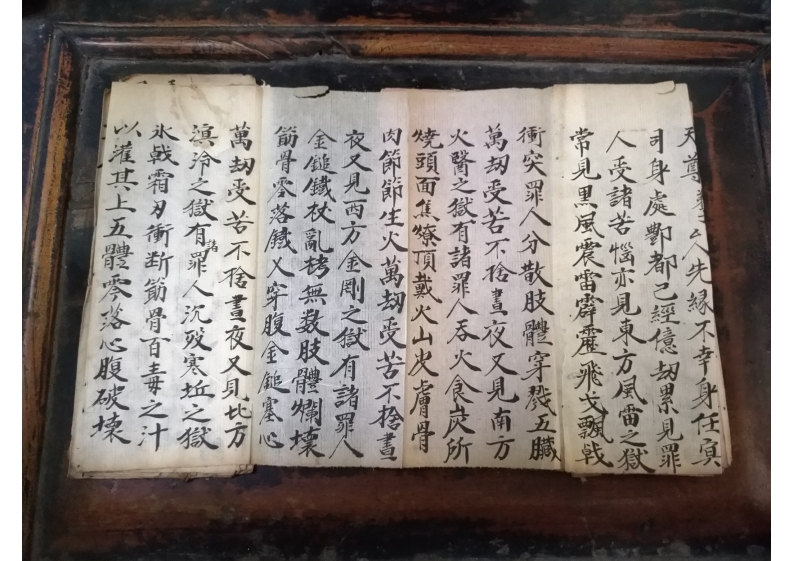 天尊人先緣不幸身任冥
司身處酆都已經億劫累見罪
人受諸苦惱亦見東方風雷之獄
常見黑風震雷霹靂飛戈飄戟
衝突罪人分散肢體穿戮五臟
萬劫受苦不捨晝夜又見南方
火醫之獄有諸罪人吞火食炭所
燒頭面焦燎頂戴火山皮膚骨
肉節節生火萬劫受苦不捨晝
夜又見西方金剛之獄有諸罪人
金鎚鐵杖亂拷無数肢體爛壞
筋骨零落鐵乂穿腹金鎚塞心
萬劫受苦不捨晝夜又見北方
溟泠之獄有諸罪人沉歿寒坵之獄
氷戟霜刃衝断筋骨百毒之汁
以灌其上五體零落心腹破壞